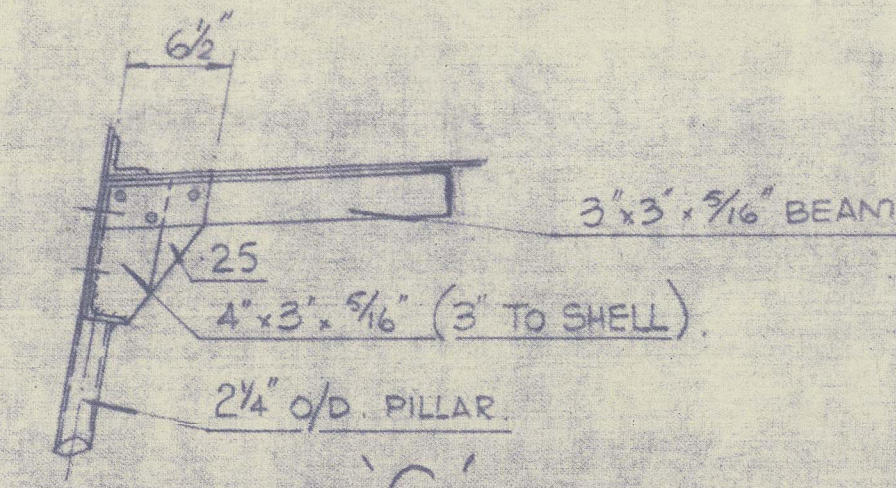 6½"
3" x 3" x 5/16" BEAM
.25
4" x 3" x 5/16" (3" TO SHELL).
2¼" O/D. PILLAR.